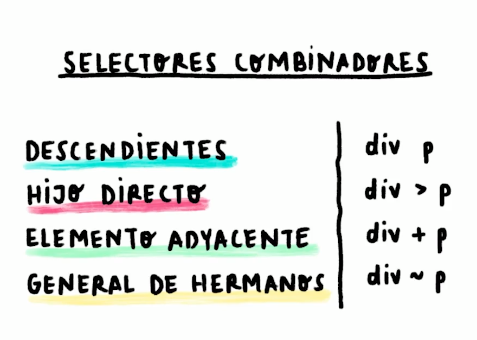 SELECTORES COMBINADORES
DESCENDIENTES div p
HIJO DIRECTO div > p
ELEMENTO ADYACENTE div + p
GENERAL DE HERMANOS div ~ p